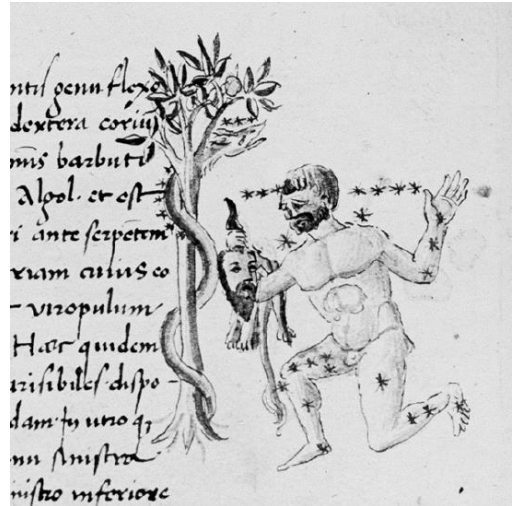 ntis genu flexo
dextera coriū
nīs barbuti
Algol. et est
ri ante serpētem
riam cuius co
viropulum
Hæc quidem
arisibiles dispo-
dam in utro q;
nu sinistra
nistro inferiore